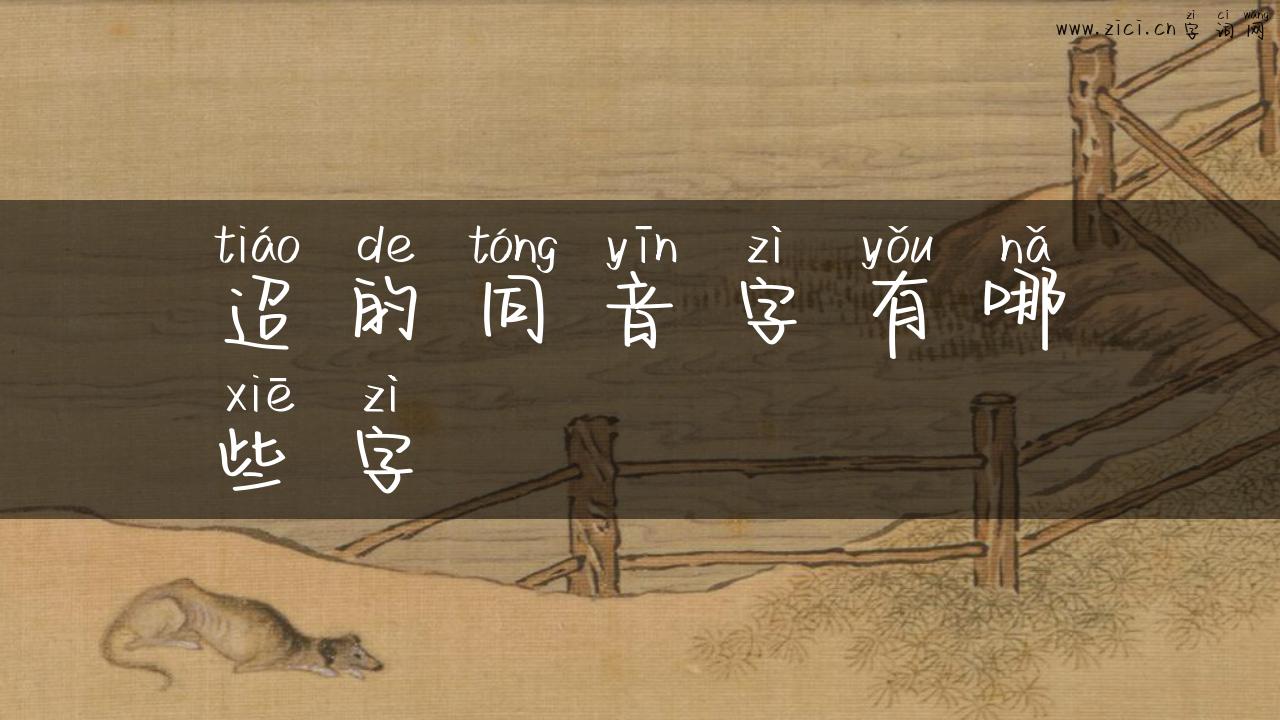 zi ci wang
www.zici.cn 字词网
tiáo de tóng yīn zì yǒu nǎ
迢的同音字有哪
xiē zì
些字